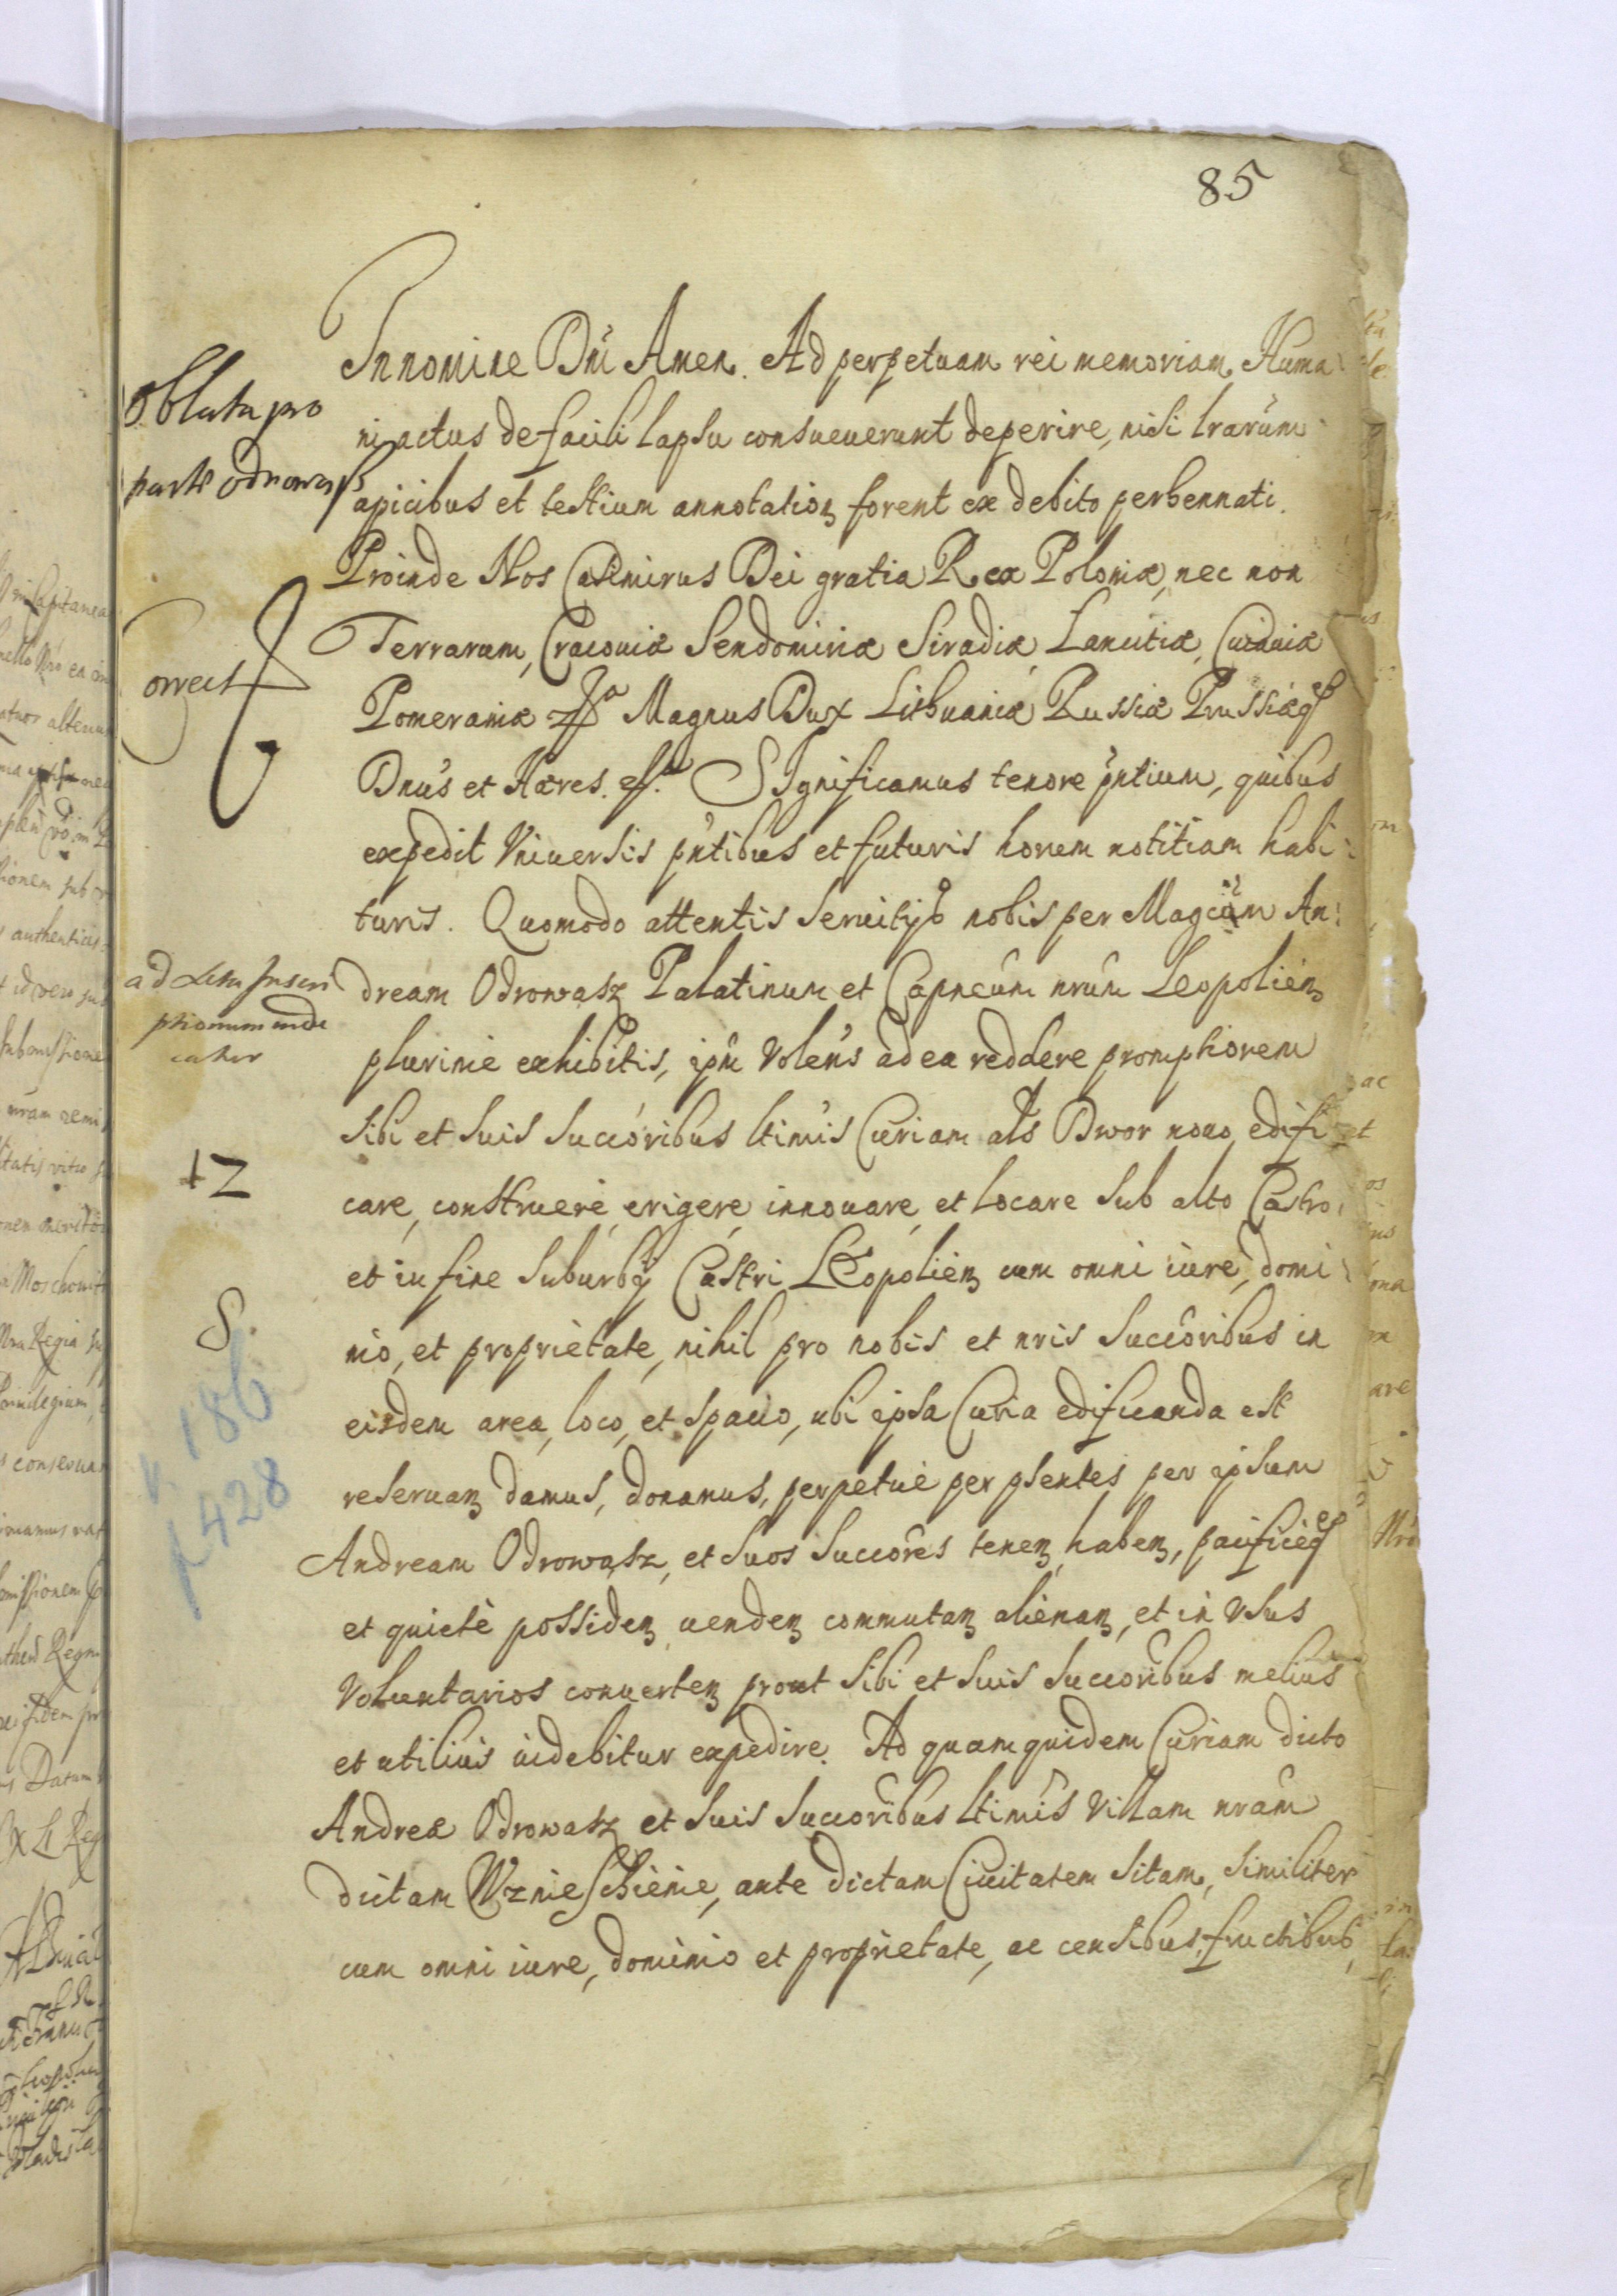 85
In nomine Dni Amen. Ad perpetuam rei memoriam. Huma
ni actus de facili lapsu consueuerunt deperire, nisi lrarum
apicibus et testium annotation forent ex debito perhennati.
Proinde Nos Casimirus Dei gratia Rex Poloniæ, nec non
Terrarum, Cracouiæ Sendomiriæ Siradiæ, Lancitiæ, Cuiauiæ
Pomeraniæ Magnus Dux Lithuaniæ Russiæ Prussiæq
Dnus et Hæres. SIgnificamus tenore pntium, quibus
expedit Vniuersis pntibus et futuris horum notitiam habi
turis. Quomodo attentis seruitys nobis per Magcum An:
dream Odrowasz Palatinum et Capneum nrum Leopolien
plurimè exhibitis, ipm Volens ad ea reddere promptiorem
sibi et suis succoribus ltimis Curiam als Dwor nouo edifi
care, construere, erigere, innouare, et locare sub alto Castro,
et in fine suburby Castri LEopolien cum omni iure, domi
nio, et proprietate, nihil pro nobis et nris succoribus in
eisdem area, loco, et spacio, ubi ipsa Curia edificanda est
reseruan damus, donamus, perpetuè per psentes per ipsum
Andream Odrowasz, et suos succores tenen, haben, pacificèq
et quietè possiden, uenden commutan alienan, et in Vsus
Voluntarios conuerten prout sibi et suis succoribus melius
et utilius uidebitur expedire. Ad quam quidem Curiam dicto
Andreæ Odrowasz et suis succoribus ltimis Villam nram
dictam WznieSchienie, ante dictam Ciuitatem sitam, similiter
cum omni iure, dominio et proprietate, ac censibus, fructibus,
Oblata pro
parte Odrowasz
Correct
ad
12
S.
186
428